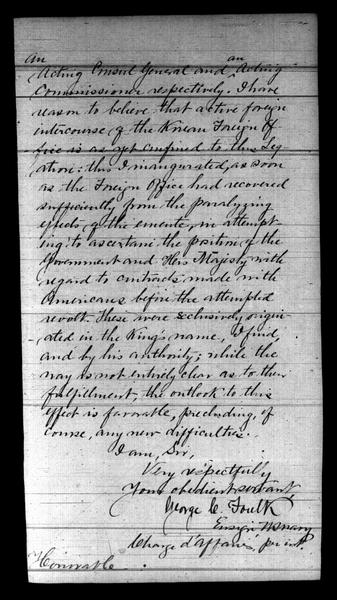 an an
Acting Consul General and Acting
Commissioner respectively. I have
reason to believe that active foreign
intercourse of the Korean Foreign Of-
fice is as yet confined to this Leg-
ation: this I inaugurated, as soon
as the Foreign Office had recovered
sufficiently from the paralyzing
effects of the emeute, in attempt-
ing to ascertain the position of the
Government and His Majesty with
regard to contracts made with
Americans before the attempted
revolt. These were exclusively origin-
ated in the King's name, I find
and by his authority; while the
way is not entirely clear as to their
fulfillment, the outlook to this
effect is favorable, precluding, of
course, any new difficulties.
I am, Sir,
Very respectfully
Your obedient servant,
George C. Foulk
Ensign U.S. Navy
Chargé d'Affaires, pr. int.
Honorable